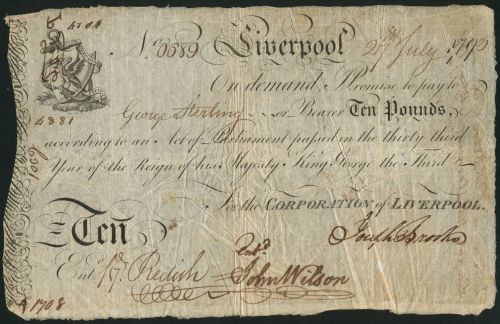 No. 0689 Liverpool 27th July
On demand, I Promise to pay to
George Sterling or Bearer Ten Pounds,
according to an Act of Parliament passed in the thirty third
Year of the Reign of his Majesty King George the Third
For the CORPORATION of LIVERPOOL.
Ten
Joseph Brooks
Entd.
Entd. Redish John Wilson
1708